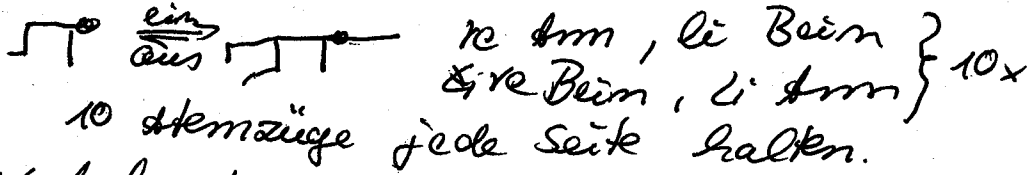 ein
aus
re Arm, li Bein } 10x
& re Bein, li Arm
10 Atemzüge jede Seite halten.